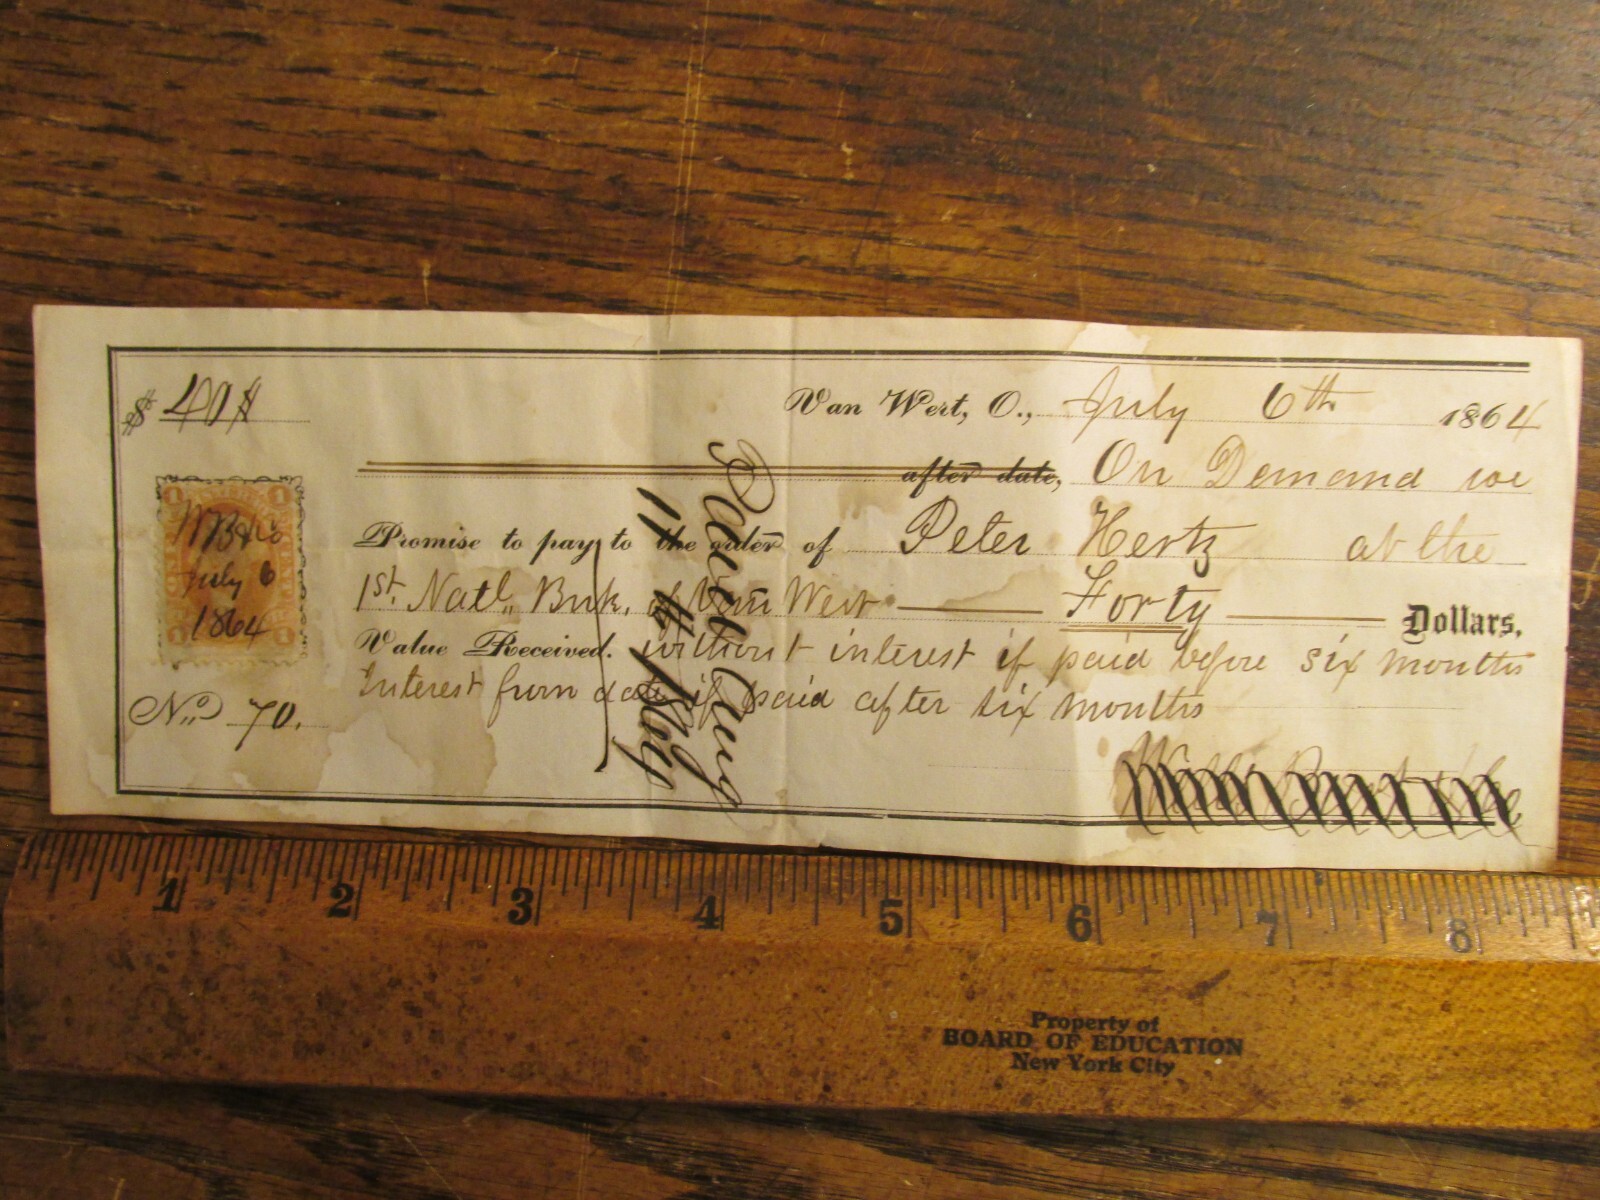 $ 40 $
Van Wert, O., July 6th 1864
after date, On Demand we
Promise to pay to the order of Peter Hertz at the
1st. Natl. Bnk. of Van Wert Forty Dollars.
Value Received. without interest if paid before six months
Interest from date if paid after six months
No. 70.
July 6
1864
Paid Aug
11
1
1
1
1
1 2 3 4 5 6 7 8
Property of
BOARD OF EDUCATION
New York City